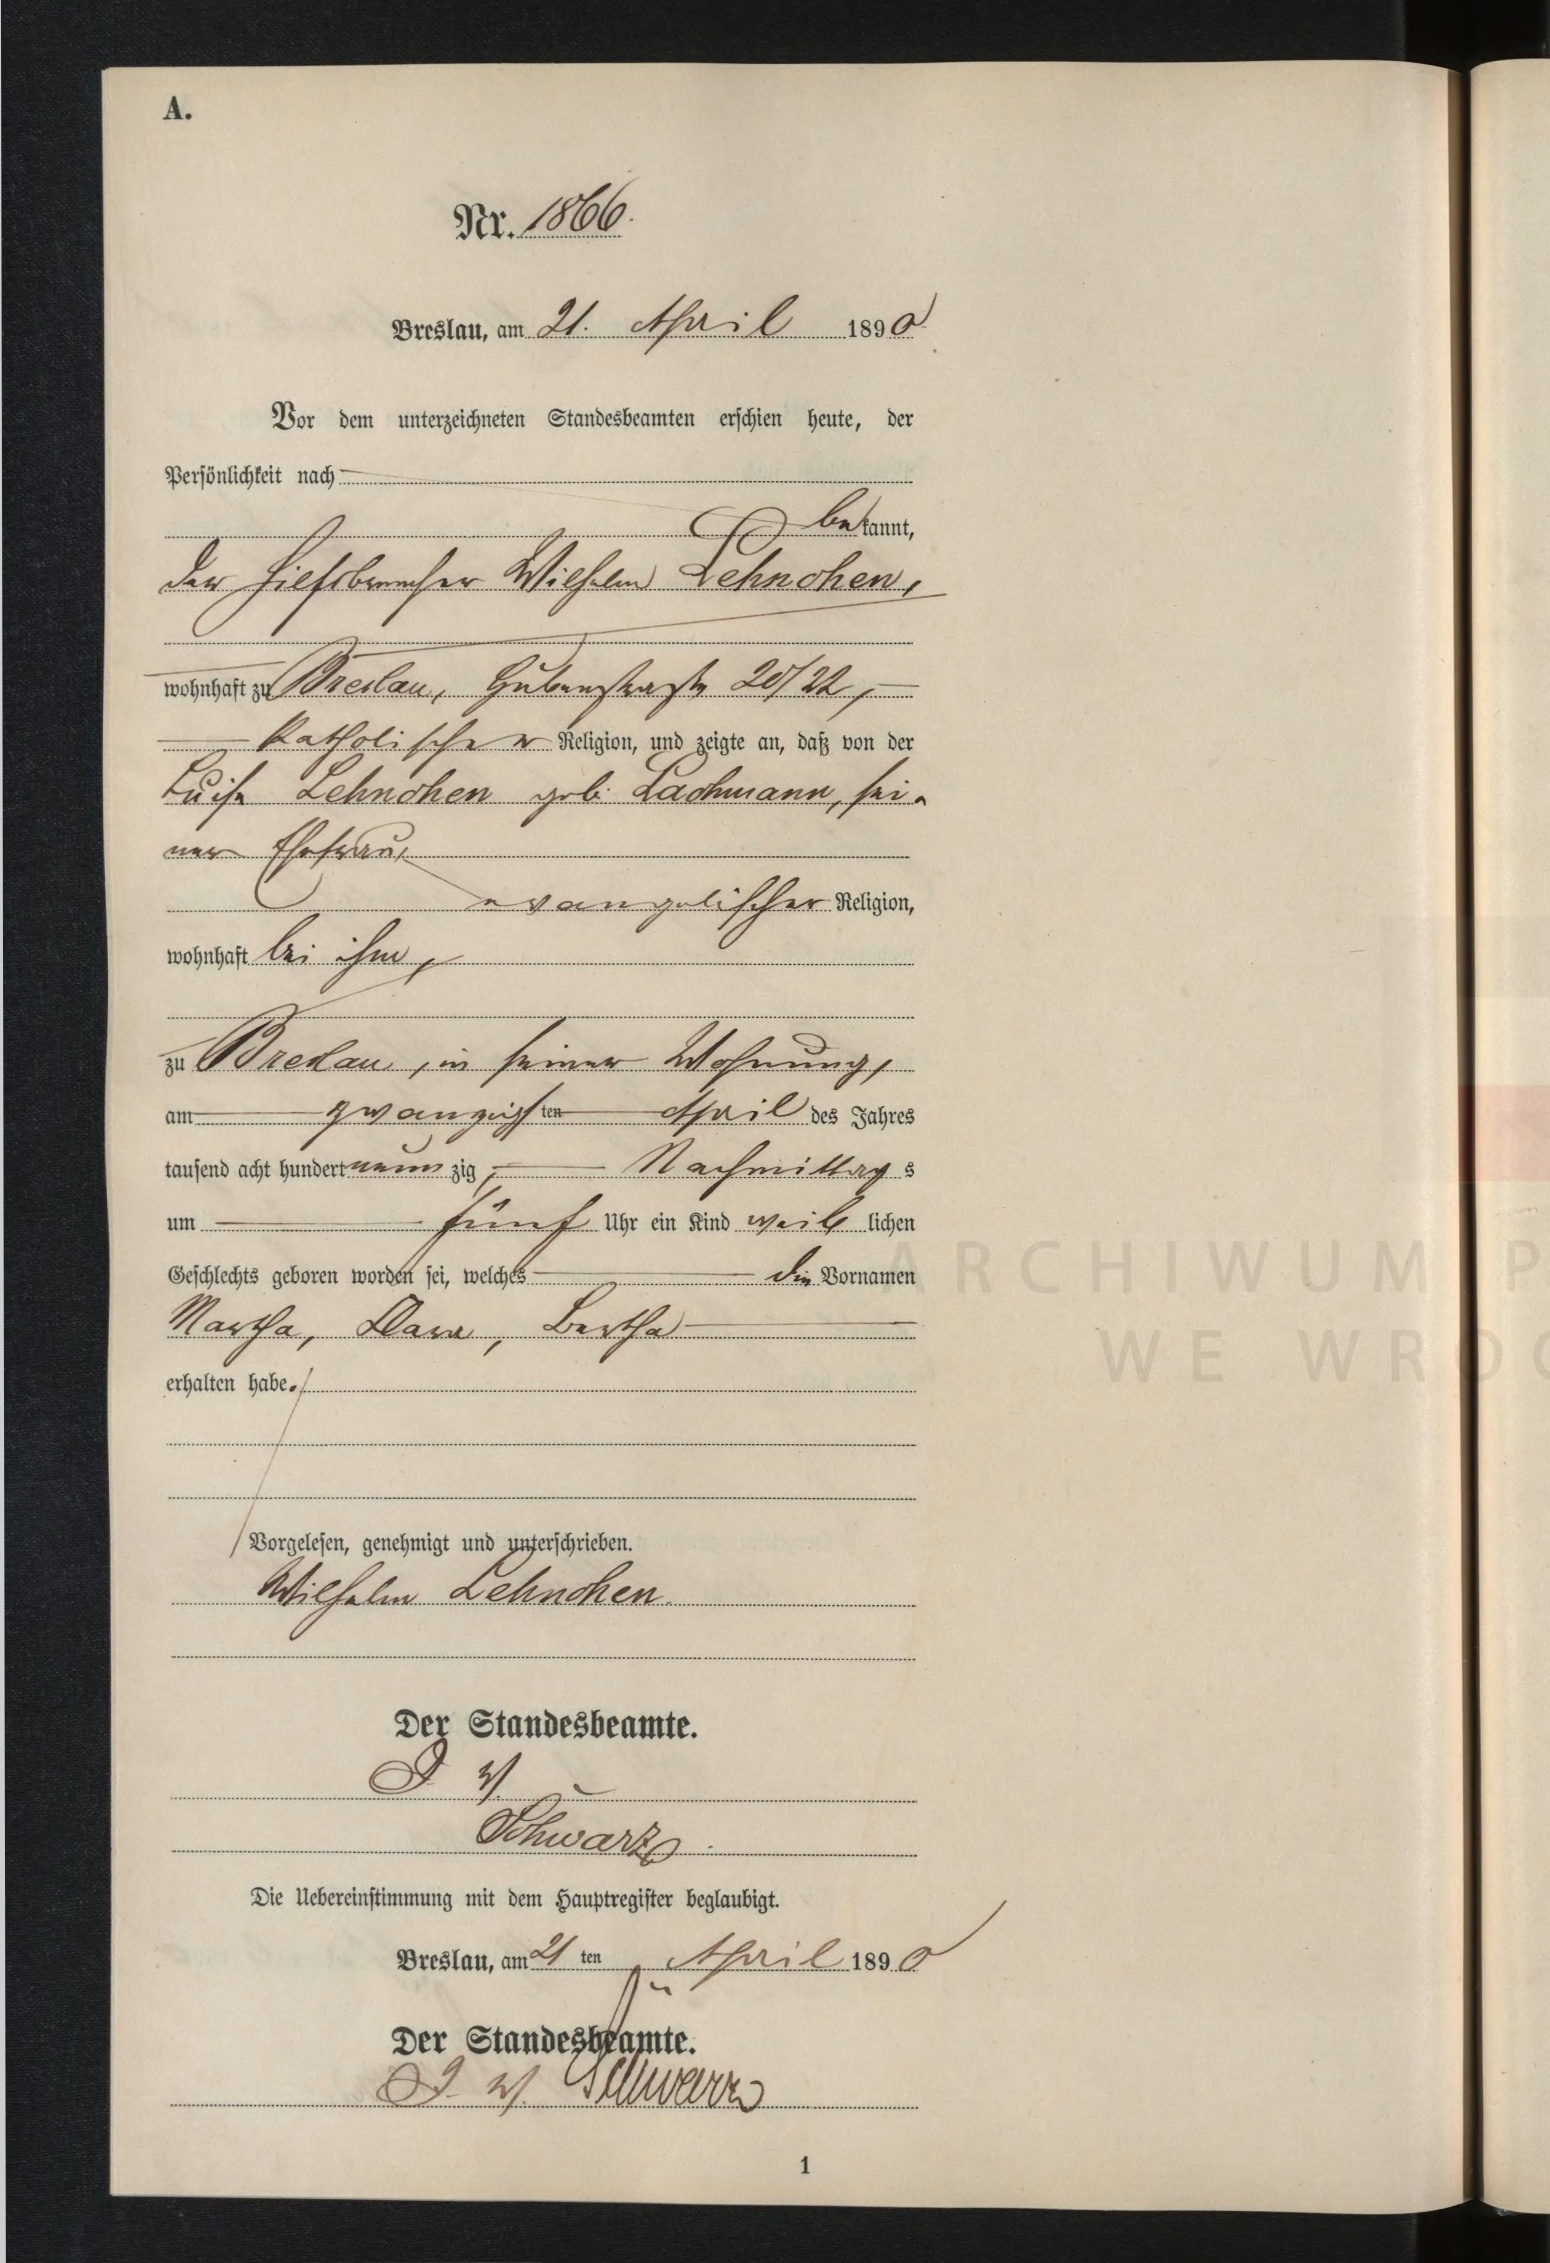 A.
Nr. 1866.
Breslau, am 21. April 1890
Vor dem unterzeichneten Standesbeamten erschien heute, der
Persönlichkeit nach
bekannt,
der Hilfsbremser Wilhelm Lehnchen,
wohnhaft zu Breslau, Gubenstraße 20/22,
katholischer Religion, und zeigte an, daß von der
Luise Lehnchen geb. Lachmann, sei-
ner Ehefrau,
evangelischer Religion,
wohnhaft bei ihm,
zu Breslau, in seiner Wohnung,
am zwanzigsten April des Jahres
tausend acht hundert neunzig, Nachmittags
um fünf Uhr ein Kind weiblichen
Geschlechts geboren worden sei, welches die Vornamen
Martha, Clara, Bertha
erhalten habe.
Vorgelesen, genehmigt und unterschrieben.
Wilhelm Lehnchen.
Der Standesbeamte.
I V.
Schwarz.
Die Uebereinstimmung mit dem Hauptregister beglaubigt.
Breslau, am 21 ten April 1890
Der Standesbeamte.
I. V. Schwarz
1
ARCHIWUM P
WE WROC